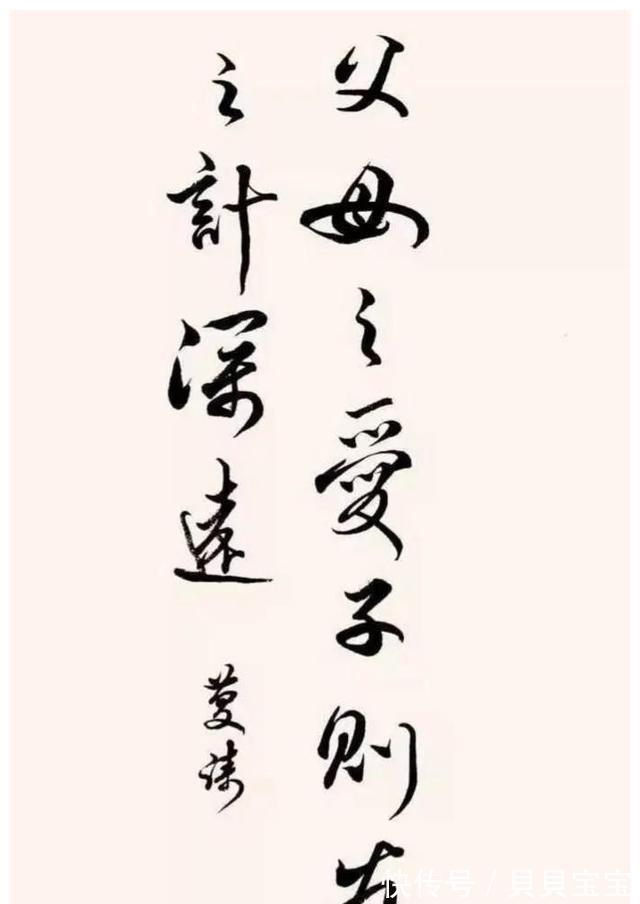 父母之愛子則
之計深遠
蔓
快传号/貝貝宝宝